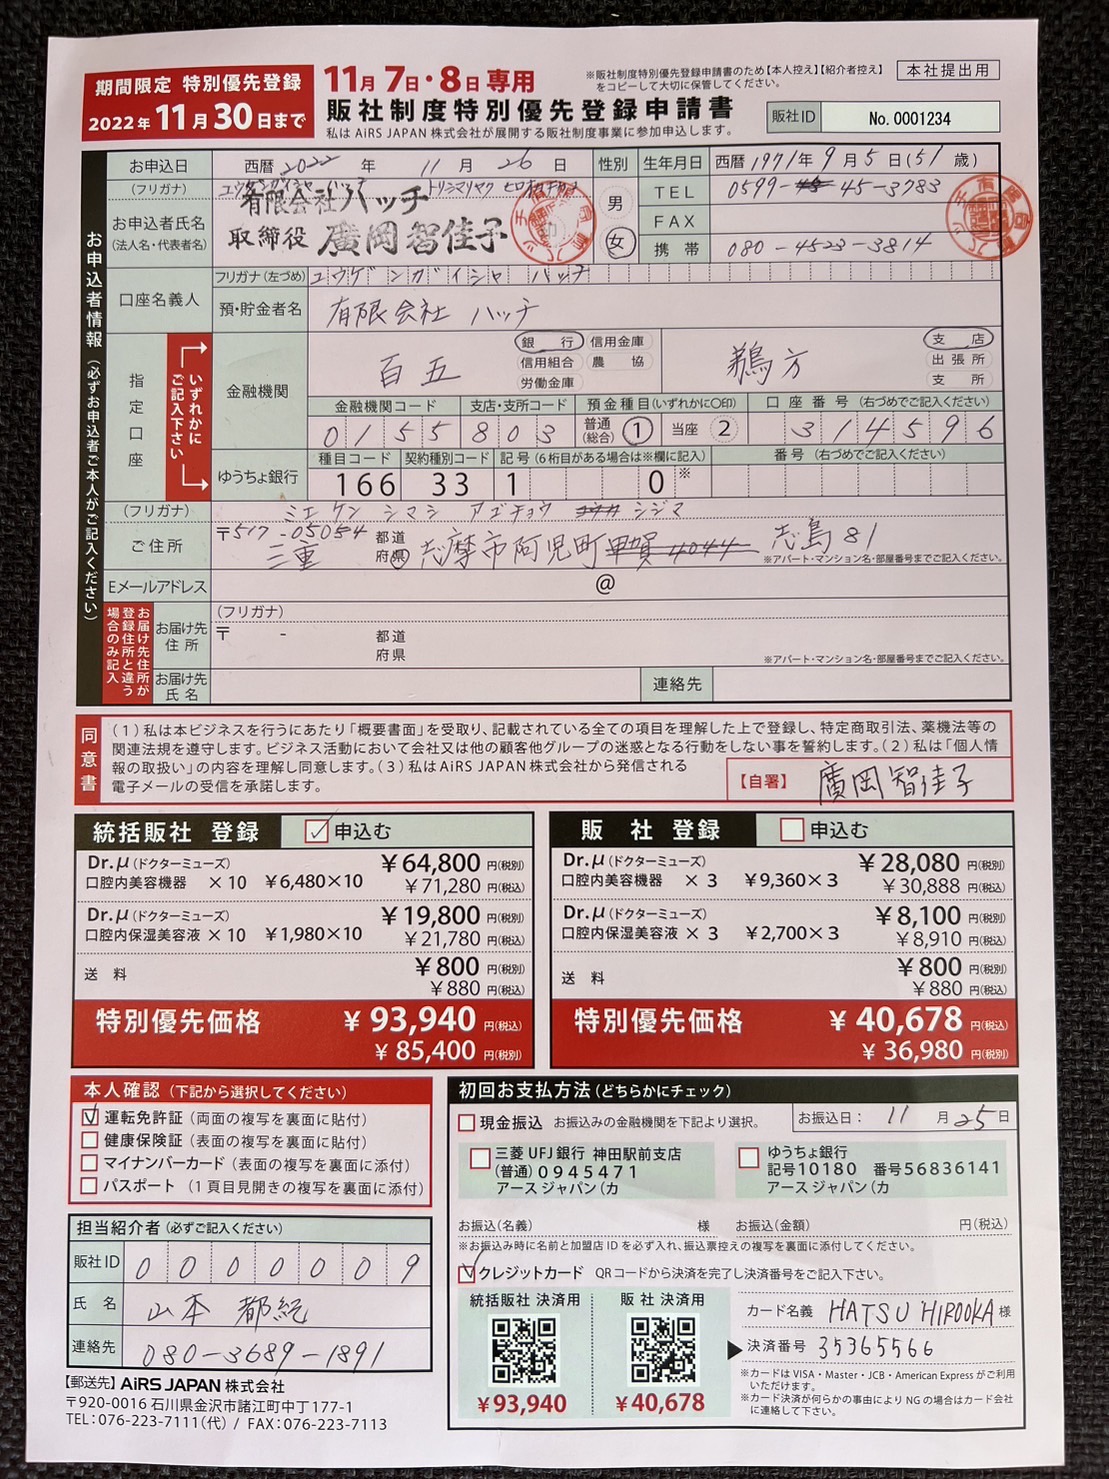 期間限定 特別優先登録
2022年11月30日まで
11月7日・8日専用
販社制度特別優先登録申請書
私は AiRS JAPAN 株式会社が展開する販社制度事業に参加申込します。
※販社制度特別優先登録申請書のため【本人控え】【紹介者控え】
をコピーして大切に保管してください。
本社提出用
販社ID No. 0001234
お申込者情報（必ずお申込者ご本人がご記入ください）
お申込日 西暦 2022 年 11 月 26 日 性別 生年月日 西暦 1971年 9月 5日 (51歳)
(フリガナ) ユウゲンガイシャ ハッチ トリシマリヤク ヒロオカチカコ
お申込者氏名
(法人名・代表者名)
有限会社ハッチ
取締役 廣岡智佳子
男
女
TEL 0599-45-3783
FAX
携帯 080-4523-3814
口座名義人
フリガナ(左づめ) ユウゲンガイシャ ハッチ
預・貯金者名 有限会社 ハッチ
指定口座
いずれかにご記入下さい
金融機関 百五 銀行 信用金庫 信用組合 農協 労働金庫
鵜方 支店 出張所 支所
金融機関コード 支店・支所コード 預金種目(いずれかに〇印) 口座番号(右づめでご記入ください)
0155 803 普通(総合) 1 当座 2 314596
ゆうちょ銀行
種目コード 契約種別コード 記号(6桁目がある場合は※欄に記入) 番号(右づめでご記入ください)
166 33 1 0 ※
(フリガナ) ミエケン シマシ アゴチョウ シジマ
ご住所
〒517-05054
三重 都道府県 志摩市阿児町甲賀4044 志島81
※アパート・マンション名・部屋番号までご記入ください。
Eメールアドレス @
お届け先住所が登録住所と違う場合のみ記入
お届け先住所
(フリガナ)
〒 -
都道
府県
※アパート・マンション名・部屋番号までご記入ください。
お届け先氏名 連絡先
同意書
(1)私は本ビジネスを行うにあたり「概要書面」を受取り、記載されている全ての項目を理解した上で登録し、特定商取引法、薬機法等の
関連法規を遵守します。ビジネス活動において会社又は他の顧客他グループの迷惑となる行動をしない事を誓約します。(2)私は「個人情
報の取扱い」の内容を理解し同意します。(3)私はAiRS JAPAN 株式会社から発信される
電子メールの受信を承諾します。
【自署】 廣岡智佳子
統括販社 登録 申込む
Dr.μ(ドクターミューズ) ¥64,800 円(税別)
口腔内美容機器 ×10 ¥6,480×10 ¥71,280 円(税込)
Dr.μ(ドクターミューズ) ¥19,800 円(税別)
口腔内保湿美容液 ×10 ¥1,980×10 ¥21,780 円(税込)
送料 ¥800 円(税別)
¥880 円(税込)
特別優先価格 ¥93,940 円(税込)
¥85,400 円(税別)
販社 登録 申込む
Dr.μ(ドクターミューズ) ¥28,080 円(税別)
口腔内美容機器 ×3 ¥9,360×3 ¥30,888 円(税込)
Dr.μ(ドクターミューズ) ¥8,100 円(税別)
口腔内保湿美容液 ×3 ¥2,700×3 ¥8,910 円(税込)
送料 ¥800 円(税別)
¥880 円(税込)
特別優先価格 ¥40,678 円(税込)
¥36,980 円(税別)
本人確認(下記から選択してください)
運転免許証(両面の複写を裏面に貼付)
健康保険証(表面の複写を裏面に貼付)
マイナンバーカード(表面の複写を裏面に添付)
パスポート(1頁目見開きの複写を裏面に添付)
担当紹介者(必ずご記入ください)
販社ID 00000009
氏名 山本 都紀
連絡先 080-3689-1891
【郵送先】AiRS JAPAN 株式会社
〒920-0016 石川県金沢市諸江町中丁177-1
TEL:076-223-7111(代) / FAX:076-223-7113
初回お支払方法(どちらかにチェック)
現金振込 お振込みの金融機関を下記より選択。 お振込日: 11月25日
三菱UFJ銀行 神田駅前支店
(普通)0945471
アースジャパン(カ
ゆうちょ銀行
記号10180 番号56836141
アースジャパン(カ
お振込(名義) 様 お振込(金額) 円(税込)
※お振込み時に名前と加盟店IDを必ず入れ、振込票控えの複写を裏面に添付してください。
クレジットカード QRコードから決済を完了し決済番号をご記入下さい。
統括販社 決済用 販社 決済用
¥93,940 ¥40,678
カード名義 HATSU HIROOKA 様
決済番号 35365566
※カードはVISA・Master・JCB・American Express がご利用
いただけます。
※カード決済が何らかの事由によりNGの場合はカード会社
に連絡して下さい。